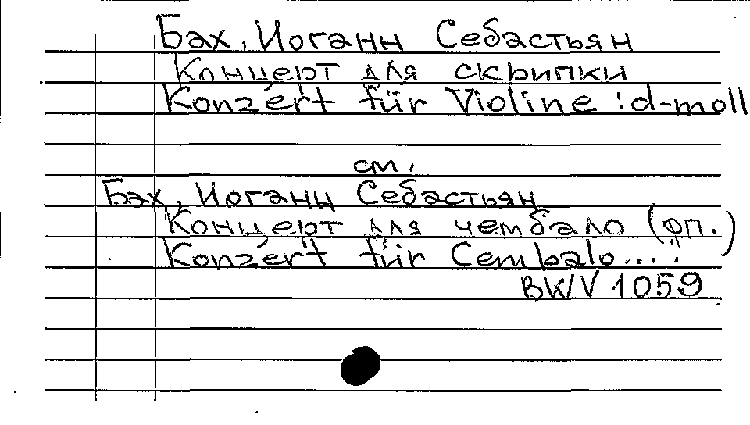 Бах, Иоганн Себастьян
Концерт для скрипки
Konzert für Violine : d-moll
см.
Бах, Иоганн Себастьян
Концерт для чембало (фп.)
Konzert für Cembalo... :
BWV 1059